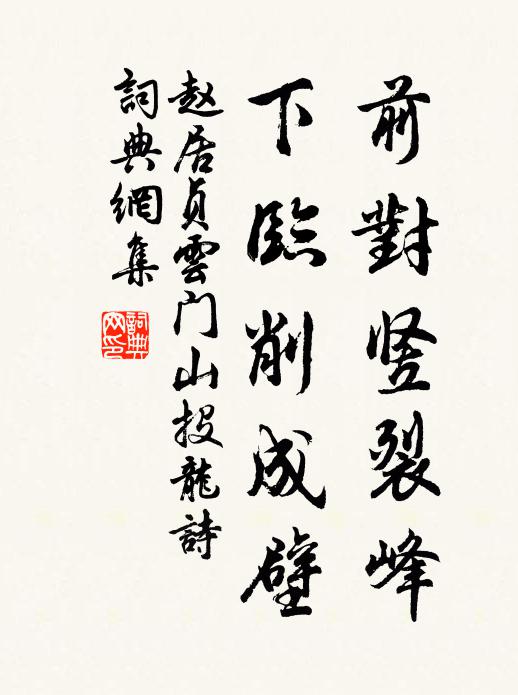 前對竖裂峰
下臨削成壁
赵居貞雲门山投龍詩
詞典網集
詞典网印